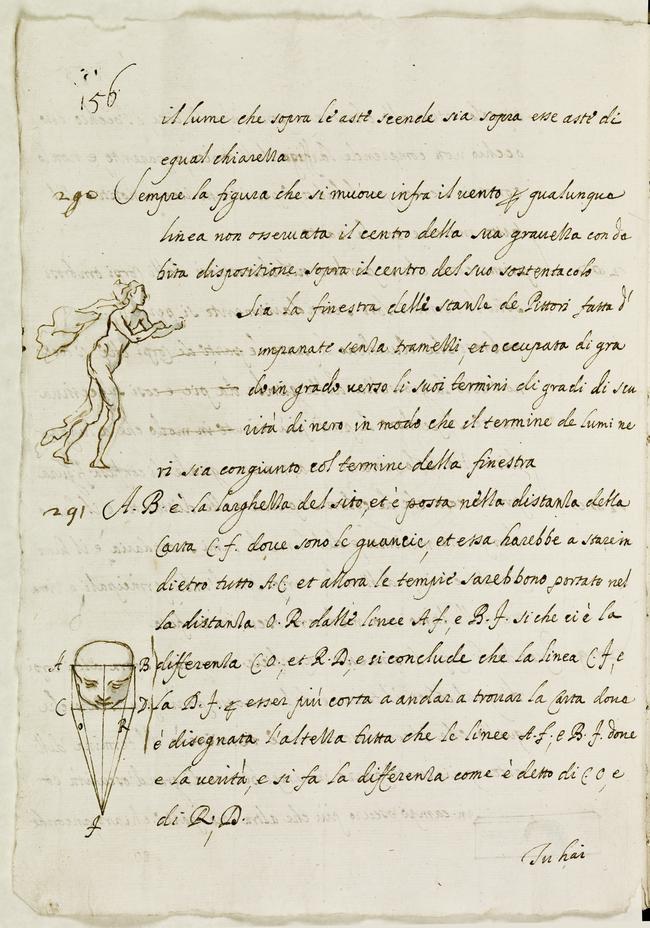 156
il lume che sopra le aste scende sia sopra esse aste di
egual chiarezza
290 Sempre la figura che si muove infra il vento p qualunque
linea non osservata il centro della sua gravezza con de
bita dispositione sopra il centro del suo sostentacolo
Sia la finestra delle stanze de Pittori fatta d'
impanate senza tramezzi, et occupata di gra
do in grado verso li suoi termini di gradi di scu
rità di nero in modo che il termine de lumi ne
ri sia congiunto col termine della finestra
291 A.B. è la larghezza del sito, et è posta nella distanza della
Carta C.f. dove sono le guancie, et essa harebbe a stare in
dietro tutto A.C, et allora le tempie sarebbono portate nel
la distanza O.R. dalle linee A f, e B.f. si che ci è la
differenza C.O, et R.D, e si conclude che la linea C.f, e
la D.f. p esser più corta a andar a trovar la Carta dove
è disegnata l'altezza tutta che le linee A.f, e B.f. dove
e la verità, e si fa la differenza come è detto di C O, e
di R, D.
Tu hai
A B
C D
O R
f